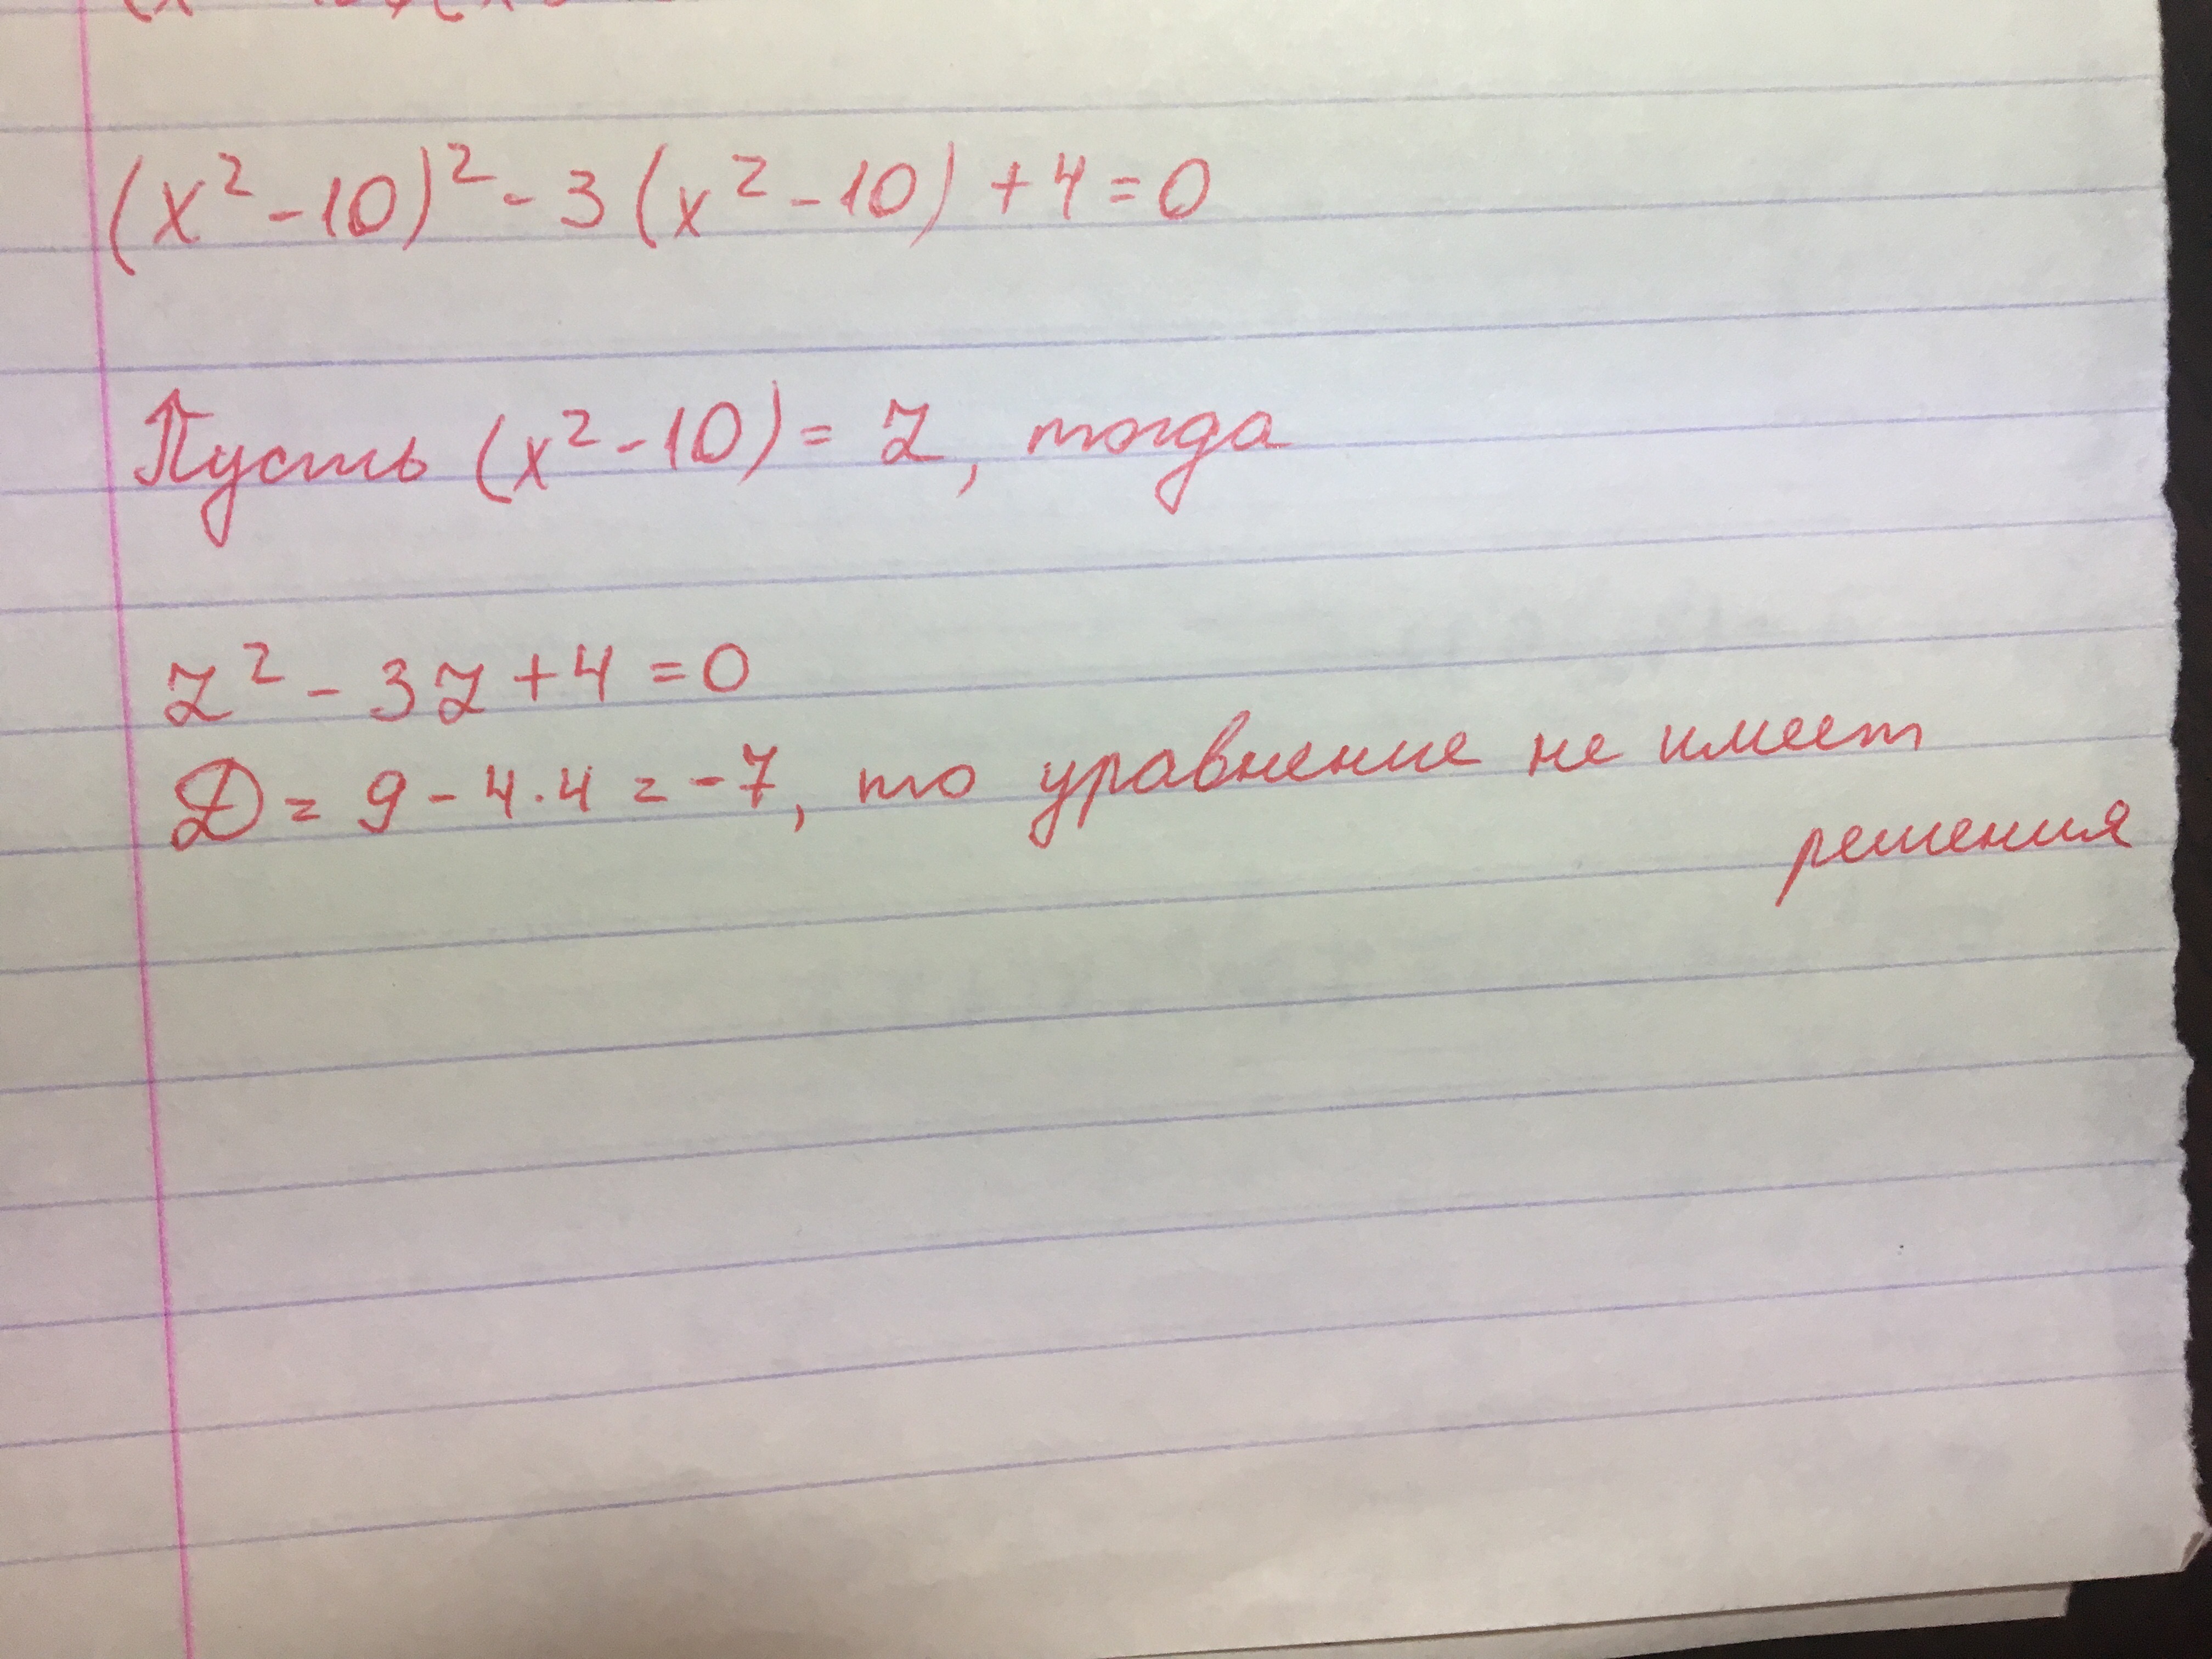 (x² - 10)² - 3 (x² - 10) + 4 = 0
Пусть (x² - 10) = z, тогда
z² - 3z + 4 = 0
Д = 9 - 4 · 4 = -7, то уравнение не имеет
решения